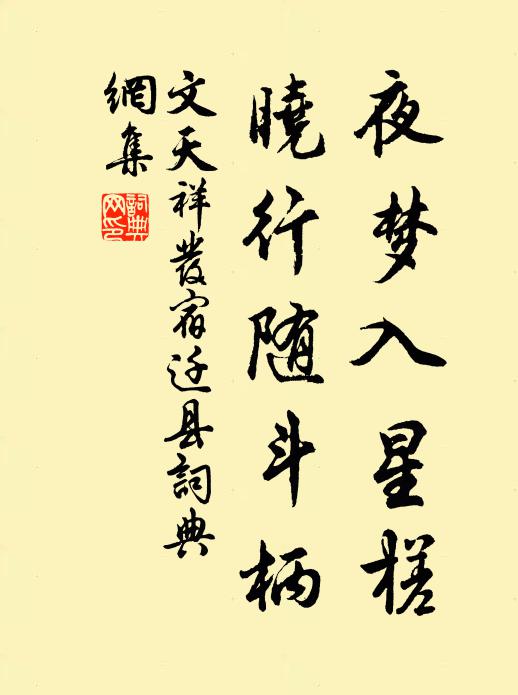 夜梦入星槎
晓行随斗柄
文天祥發宿迁县詞典
網集
詞典网印